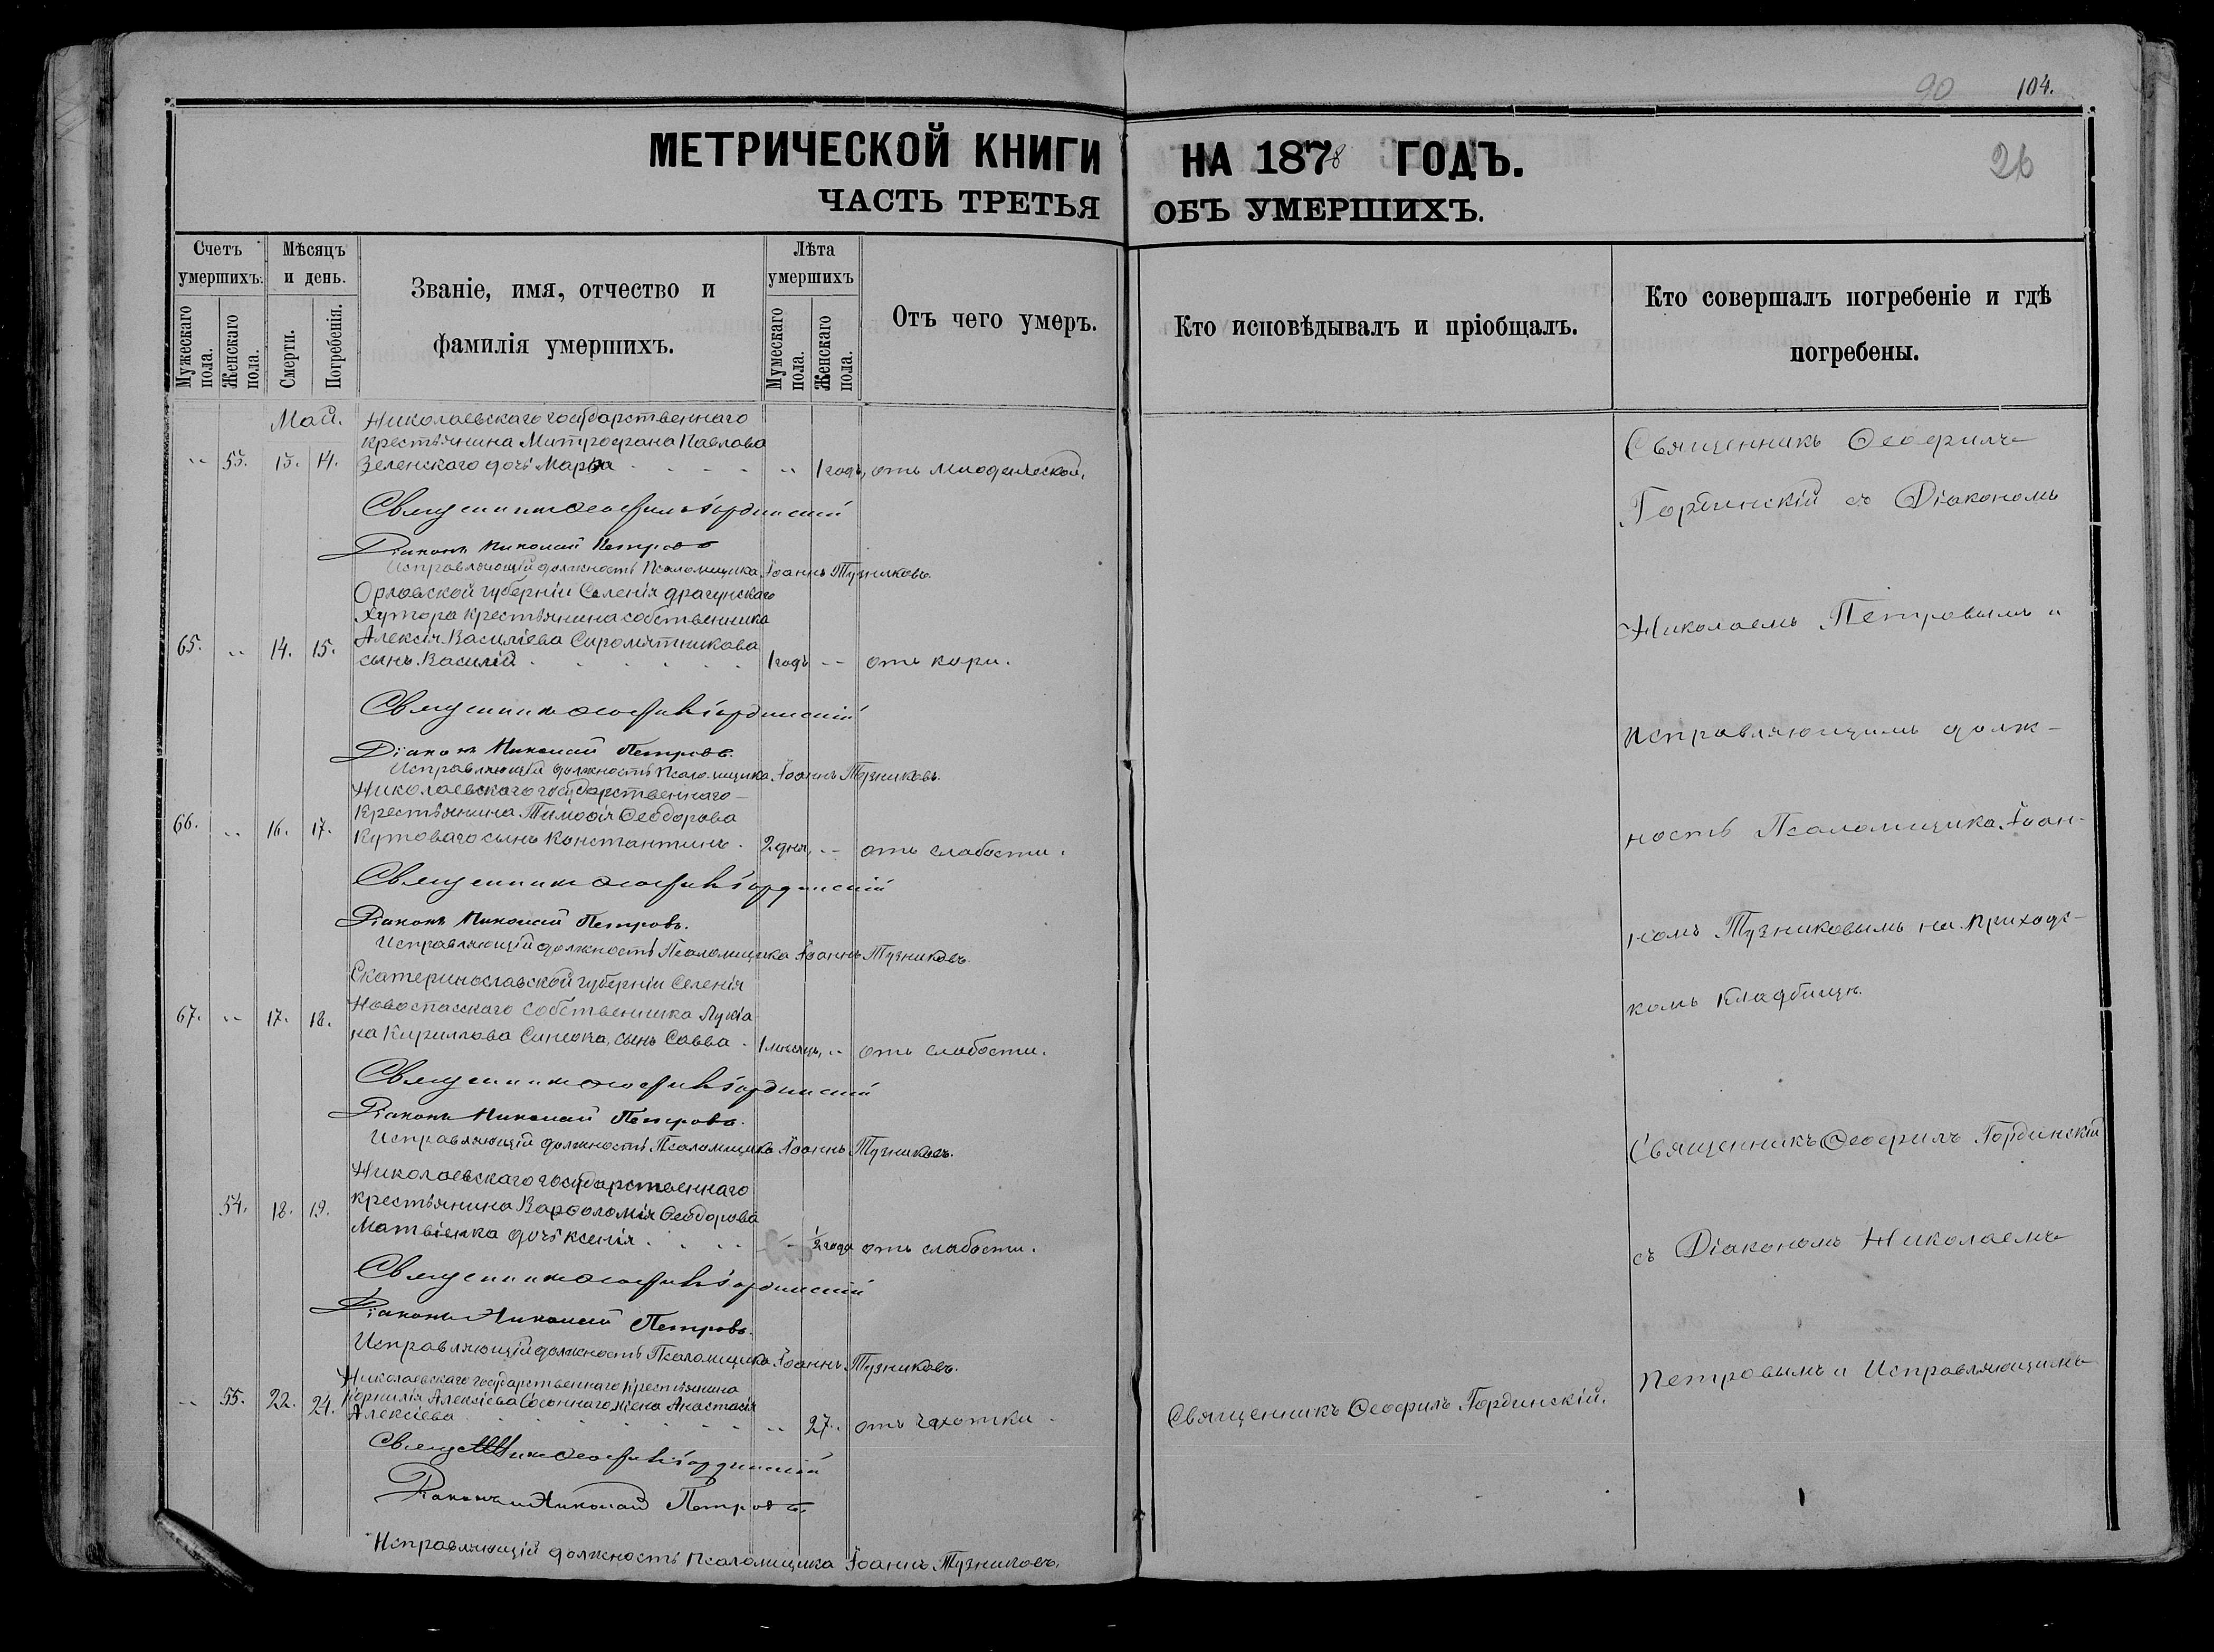 90 104.
26
МЕТРИЧЕСКОЙ КНИГИ НА 1878 ГОДЪ.
ЧАСТЬ ТРЕТЬЯ ОБЪ УМЕРШИХЪ.
Счетъ умершихъ.
Мужескаго пола.
Женскаго пола.
Мѣсяцъ и день.
Смерти.
Погребенія.
Званіе, имя, отчество и
фамилія умершихъ.
Лѣта умершихъ
Мужескаго пола.
Женскаго пола.
Отъ чего умеръ.
Кто исповѣдывалъ и пріобщалъ.
Кто совершалъ погребеніе и гдѣ
погребены.
Май.
Николаевскаго государственнаго
крестьянина Митрофана Павлова
" 53. 13. 14. Зеленскаго дочь Марѳа " 1 годъ, отъ младенческой.
Священникъ Ѳеофилъ Гординскій
Діаконъ Николай Петровъ
Исправляющій должность Псаломщика Іоаннъ Тузниковъ.
Орловской губерніи Селенія драгунскаго
Хутора крестьянина собственника
65. " 14. 15. Алексія Василіева Сыромятникова
сынъ Василій 1 годъ " отъ кори.
Священникъ Ѳеофилъ Гординскій
Діаконъ Николай Петровъ.
Исправляющій должность Псаломщика Іоаннъ Тузниковъ.
Николаевскаго государственнаго
66. " 16. 17. Крестьянина Тимоѳія Ѳеодорова
Кутоваго сынъ Константинъ. 2 дня, " отъ слабости.
Священникъ Ѳеофилъ Гординскій
Діаконъ Николай Петровъ.
Исправляющій должность Псаломщика Іоаннъ Тузниковъ.
Екатеринославской губерніи Селенія
67. " 17. 18. Новоспасскаго собственника Лукіа
на Кириллова сынъ Савва. 1 мѣсяцъ, " отъ слабости.
Священникъ Ѳеофилъ Гординскій
Діаконъ Николай Петровъ.
Исправляющій должность Псаломщика Іоаннъ Тузниковъ.
Николаевскаго государственнаго
54. 18. 19. крестьянина Варѳоломія Ѳеодорова
Матвіенка дочь Ксенія. " ½ года отъ слабости.
Священникъ Ѳеофилъ Гординскій
Діаконъ Николай Петровъ.
Исправляющій должность Псаломщика Іоаннъ Тузниковъ.
Николаевскаго государственнаго крестьянина
" 55. 22. 24. Корнилія Алексіева жена Анастасія
Алексіева " 27. отъ чахотки.
Священникъ Ѳеофилъ Гординскій.
Священникъ Ѳеофилъ Гординскій
Діаконъ Николай Петровъ.
Исправляющій должность Псаломщика Іоаннъ Тузниковъ.
Священникъ Ѳеофилъ
Гординскій съ Діакономъ
Николаемъ Петровымъ и
исправляющимъ долж-
ность Псаломщика Іоан-
номъ Тузниковымъ на приходс-
комъ кладбищѣ.
Священникъ Ѳеофилъ Гординскій
съ Діакономъ Николаемъ
Петровымъ и Исправляющимъ